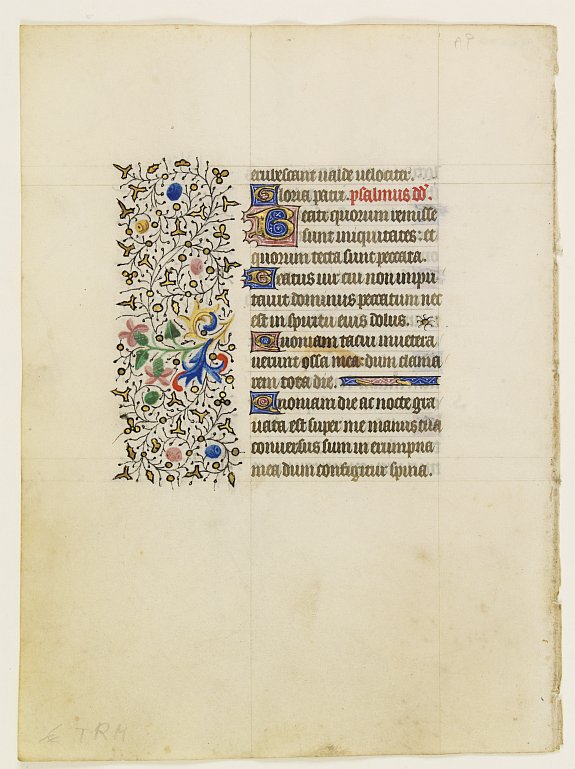 erubescant ualde uelociter.
Gloria patri. psalmus dd.
Beate quorum remisse
sunt iniquitates: et
quorum tecta sunt peccata.
Beatus uir cui non impu
tauit dominus peccatum nec
est in spiritu eius dolus.
Quoniam tacui inuetera
uerunt ossa mea: dum clama
rem tota die.
Quoniam die ac nocte gra
uata est super me manus tua
conuersus sum in erumpna
mea dum configitur spina.
TRM